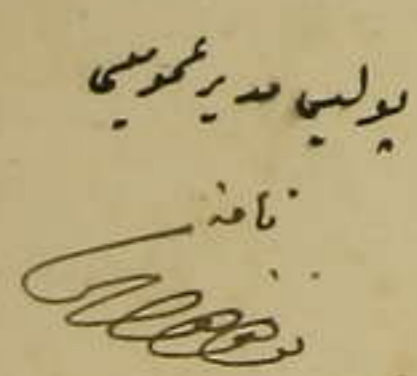 پولیس مدیر عمومیسی
نامنه